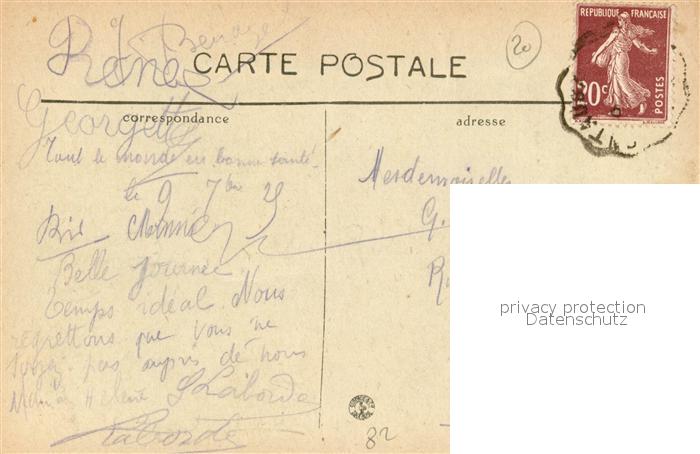 RÉPUBLIQUE FRANÇAISE
20c
POSTES
20
CARTE POSTALE
correspondance
adresse
Georgette
Tout le monde en bonne santé
le 9 7bre 25
Mesdemoiselles
G.
Belle journée
temps idéal. Nous
regrettons que vous ne
soyez pas auprès de nous
Hélène S Laborde
Laborde
privacy protection
Datenschutz
82